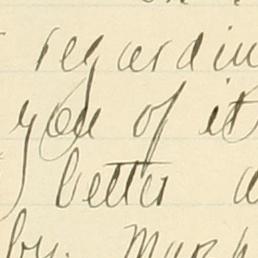 regardin
you of it
better a
by. Mur